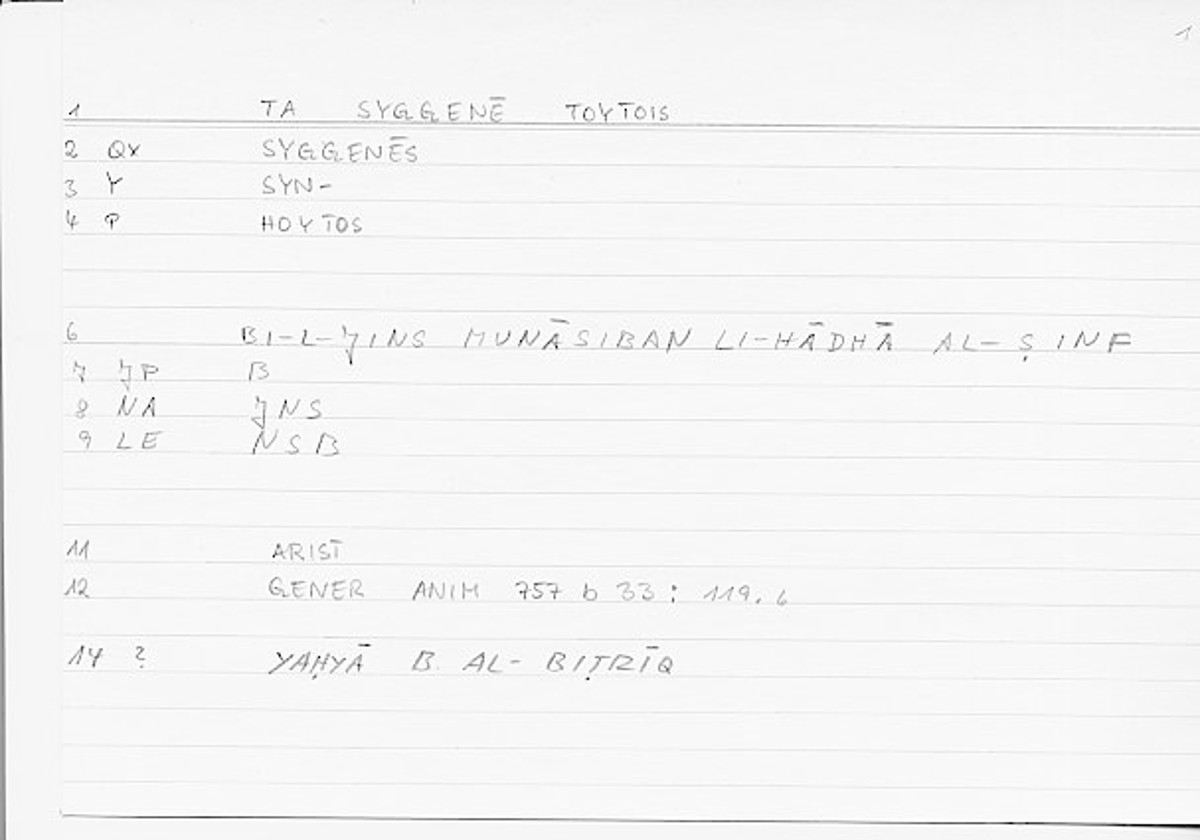 1
1 TA SYGGENĒ TOYTOIS
2 QX SYGGENĒS
3 Y SYN-
4 P HOYTOS
6 BI-L-JINS MUNĀSIBAN LI-HĀDHĀ AL-ṢINF
7 JP B
8 NA JNS
9 LE NSB
11 ARIST
12 GENER ANIM 757 b 33 : 119.6
14 ? YAḤYĀ B. AL-BIṬRĪQ